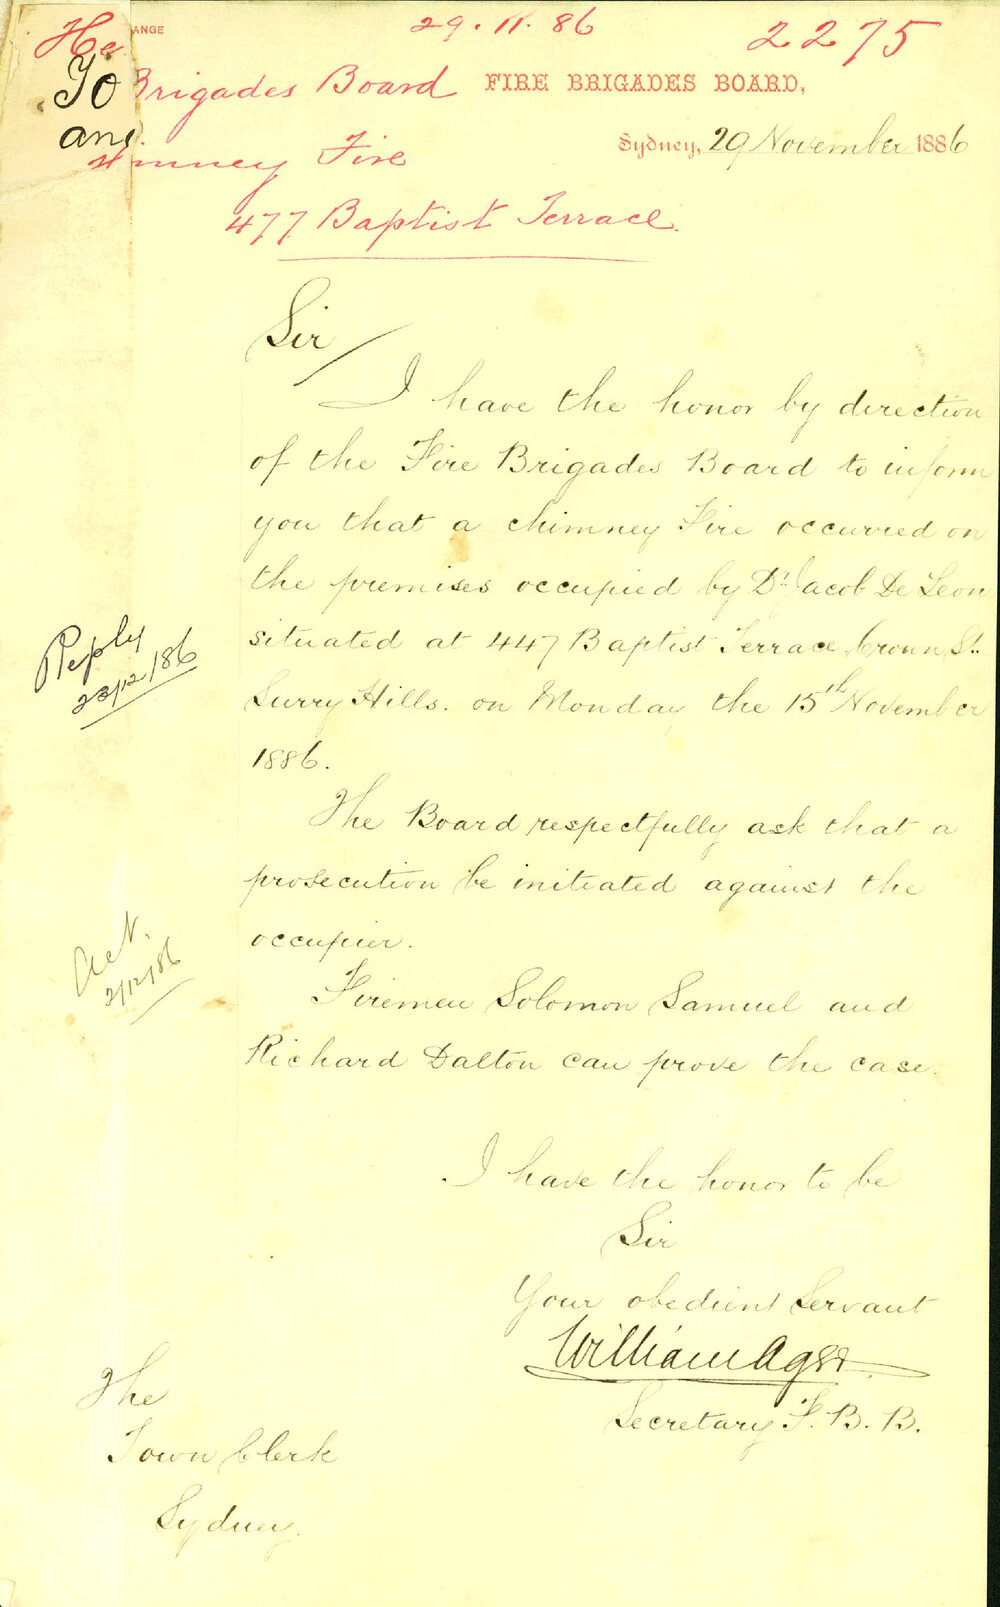 29.11.86
2275
He
ANGE
To
Brigades Board
FIRE BRIGADES BOARD,
and
Sydney, 29 November 1886
mney Fire
477 Baptist Terrace.
Sir
I have the honor by direction
of the Fire Brigades Board to inform
you that a chimney Fire occurred on
the premises occupied by Dr. Jacob De Leon
situated at 447 Baptist Terrace, Crown St.
Surry Hills. on Monday the 15th November
1886.
The Board respectfully ask that a
prosecution be initiated against the
occupier.
Firemen Solomon Samuel and
Richard Dalton can prove the case.
I have the honor to be
Sir
Your obedient Servant
William
Secretary F. B. B.
The
Town Clerk
Sydney.
Reply
23/12/86
2/12/86